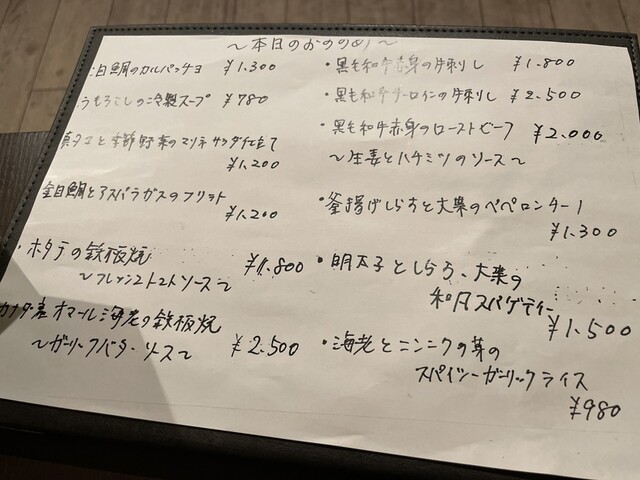 ～本日のおすすめ～
目鯛のカルパッチョ ¥1.300
うもろこしの冷製スープ ¥780
真ダコと季節野菜のマリネ サラダ仕立て
¥1.200
金目鯛とアスパラガスのフリット
¥1.200
・ホタテの鉄板焼 ¥1.800
～フレッシュトマトソース～
カナダ産オマール海老の鉄板焼
～ガーリックバターソース～ ¥2.500
・黒毛和牛赤身の牛刺し ¥1.800
・黒毛和牛サーロインの牛刺し ¥2.500
・黒毛和牛赤身のローストビーフ ¥2.000
～生姜とハチミツのソース～
・釜揚げしらすと大葉のペペロンチーノ
¥1.300
・明太子としらす、大葉の
和風スパゲティー
¥1.500
・海老とニンニクの芽の
スパイシーガーリックライス
¥980